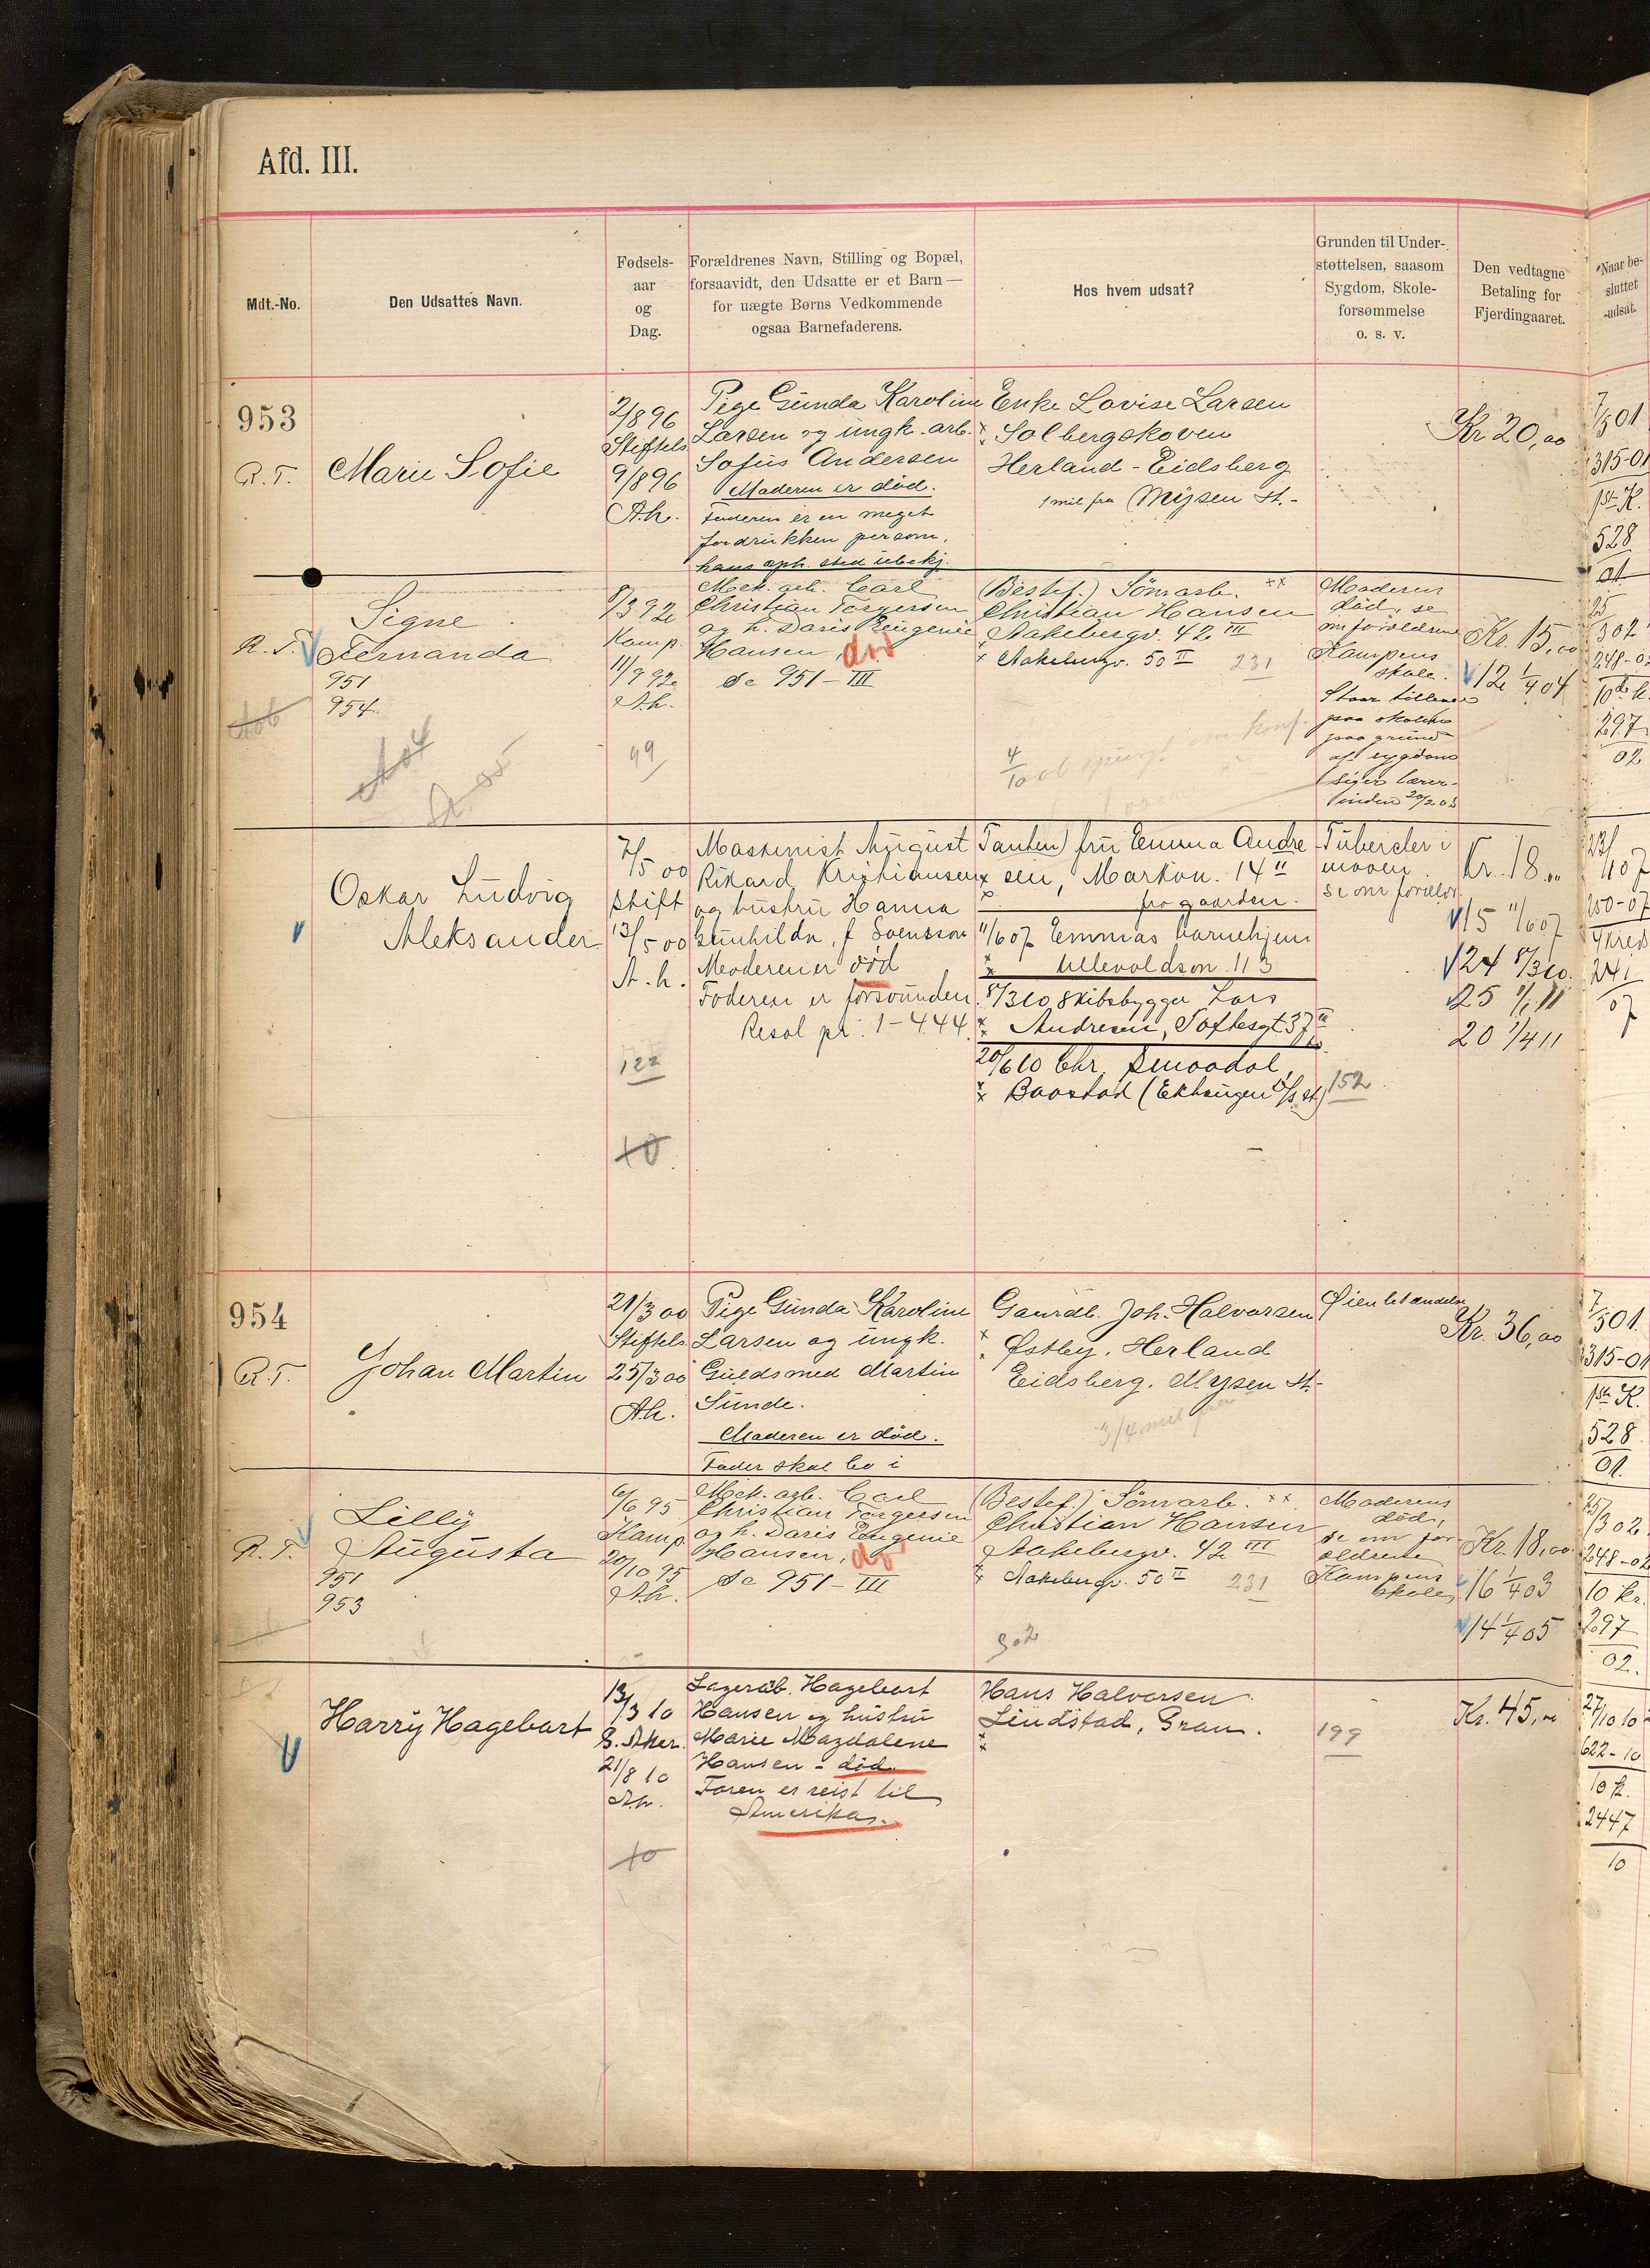 Afd. III.
Mdt.-No.
Den Udsattes Navn.
Fødsels-
aar
og
Dag.
Forældrenes Navn, Stilling og Bopæl,
forsaavidt, den Udsatte er et Barn —
for uægte Børns Vedkommende
ogsaa Barnefaderens.
Hos hvem udsat?
Grunden til Under-
støttelsen, saasom
Sygdom, Skole-
forsømmelse
o. s. v.
Den vedtagne
Betaling for
Fjerdingaaret.
Naar be-
sluttet
udsat.
953
R. T.
Marie Sofie
2/8 96
Stiftels
9/8 96
A.h.
Pige Gunda Karoline
Larsen og ungk. arb.
Sofus Andersen
Moderen er død.
Faderen er en meget
fordrukken person,
hans oph. sted ubekj.
Enke Lovise Larsen
Solbergskoven
Herland - Eidsberg
1 mil fra Mysen St.
Kr 20,00
7/5 01
315-01
1ste K.
528
01
R. T.
Signe
Fernanda
951
954
8/3 92
Kamp.
11/9 92
A.h.
99
Mek. arb. Carl
Christian Torgersen
og h. Doris Eugenie
Hansen, død
Se 951 - III
(Bestef.) Tömarb.
Christian Hansen
Aakebergv. 42 III
Aakebergv. 50 II 231
Moderen
død, se
om forældrene
Kampens
skole.
paa skolen
paa grund
af sygdom
siger lærer-
inden 20/2 05
Kr. 15,00
12 1/4 04
25
302
248-02
10de k.
297
02
Oskar Ludvig
Aleksander
7/5 00
Stift
13/5 00
A.h.
122
10
Maskinist August
Rikard Kristiansen
og hustru Hanna
Gunhilda, f. Svensson
Moderen er død
Faderen er forsvunden.
Resol pr. 1-444.
Tanten) fru Emma Andre
sen, Markvn. 14 II
fra gaarden.
11/6 07 Emmas barnehjem
Ullevoldsvn. 113
8/3 10 Skibsbygger Lars
Andresen, Toftesgt 37 III
20/6 10 Chr. Smaadal,
Baastad (Eidsberg) 152
Tuberkler i
maven
se om foræld.
Kr. 18,00
15 11/6 07
24 8/3 10.
25 1/1 11
20 1/4 11
22/1 07
250-07
4 kred
241
07
954
R. T.
Johan Martin
21/3 00
Stiftels
25/3 00
A.h.
Pige Gunda Karoline
Larsen og ungk.
Guldsmed Martin
Sunde.
Moderen er død.
Fader skal bo i
Gaardb. Joh. Halvorsen
Østby, Herland
Eidsberg. Mysen St.
3/4 mil fra
Øienbetændelse
Kr. 36,00
7/5 01.
315-01
1ste K.
528
01.
R. T.
Lilly
Augusta
951
953
6/6 95
Kamp.
20/10 95
A.h.
Mek. arb. Carl
Christian Torgersen
og h. Doris Eugenie
Hansen, død
Se 951 - III
(Bestef.) Tömarb.
Christian Hansen
Aakebergv. 42 III
Aakebergv. 50 II 231
302
Moderens
død,
se om for
ældrene
Kampens
skole
Kr. 18,00
16 1/4 03
14 1/4 05
25/3 02
248-02
10 kr.
297
02.
Harry Hagebart
13/3 10
G. Aker.
21/8 10
A.h.
10
Lagerarb. Hagebart
Hansen og hustru
Marie Magdalene
Hansen - død.
Faren er reist til
Amerika.
Hans Halvorsen
Lindstad, Gran.
199
Kr. 45,00
27/10 10
622-10
10 k.
2447
10